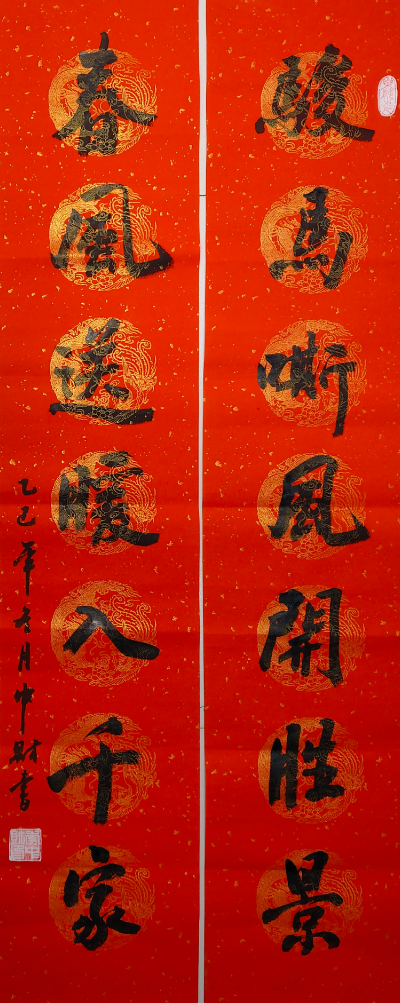 骏馬嘶風開胜景
春風送暖入千家
乙巳年冬月中财書